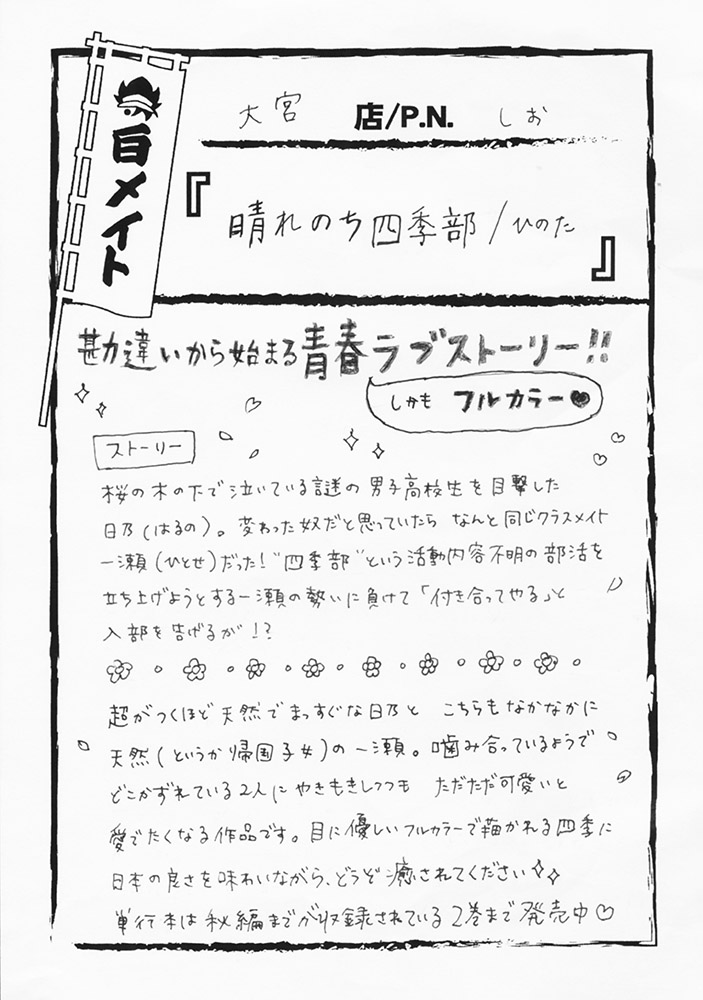 白メイト
大宮 店/P.N. しお
『晴れのち四季部/ひのた』
勘違いから始まる青春ラブストーリー!!
しかも フルカラー♥
ストーリー
桜の木の下で泣いている謎の男子高校生を目撃した
日乃(はるの)。変わった奴だと思っていたら なんと同じクラスメイト
一瀬(ひとせ)だった!"四季部"という活動内容不明の部活を
立ち上げようとする一瀬の勢いに負けて「付き合ってやる」と
入部を告げるが!?
超がつくほど天然でまっすぐな日乃と こちらもなかなかに
天然(というか帰国子女)の一瀬。噛み合っているようで
どこかずれている2人にやきもきしつつも ただただ可愛いと
愛でたくなる作品です。目に優しいフルカラーで描かれる四季に
日本の良さを味わいながら、どうぞ癒されてください✧✧
単行本は秋編までが収録されている2巻まで発売中♡